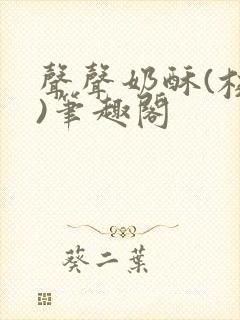 聲聲奶酥(校
)筆趣閣
葵二葉